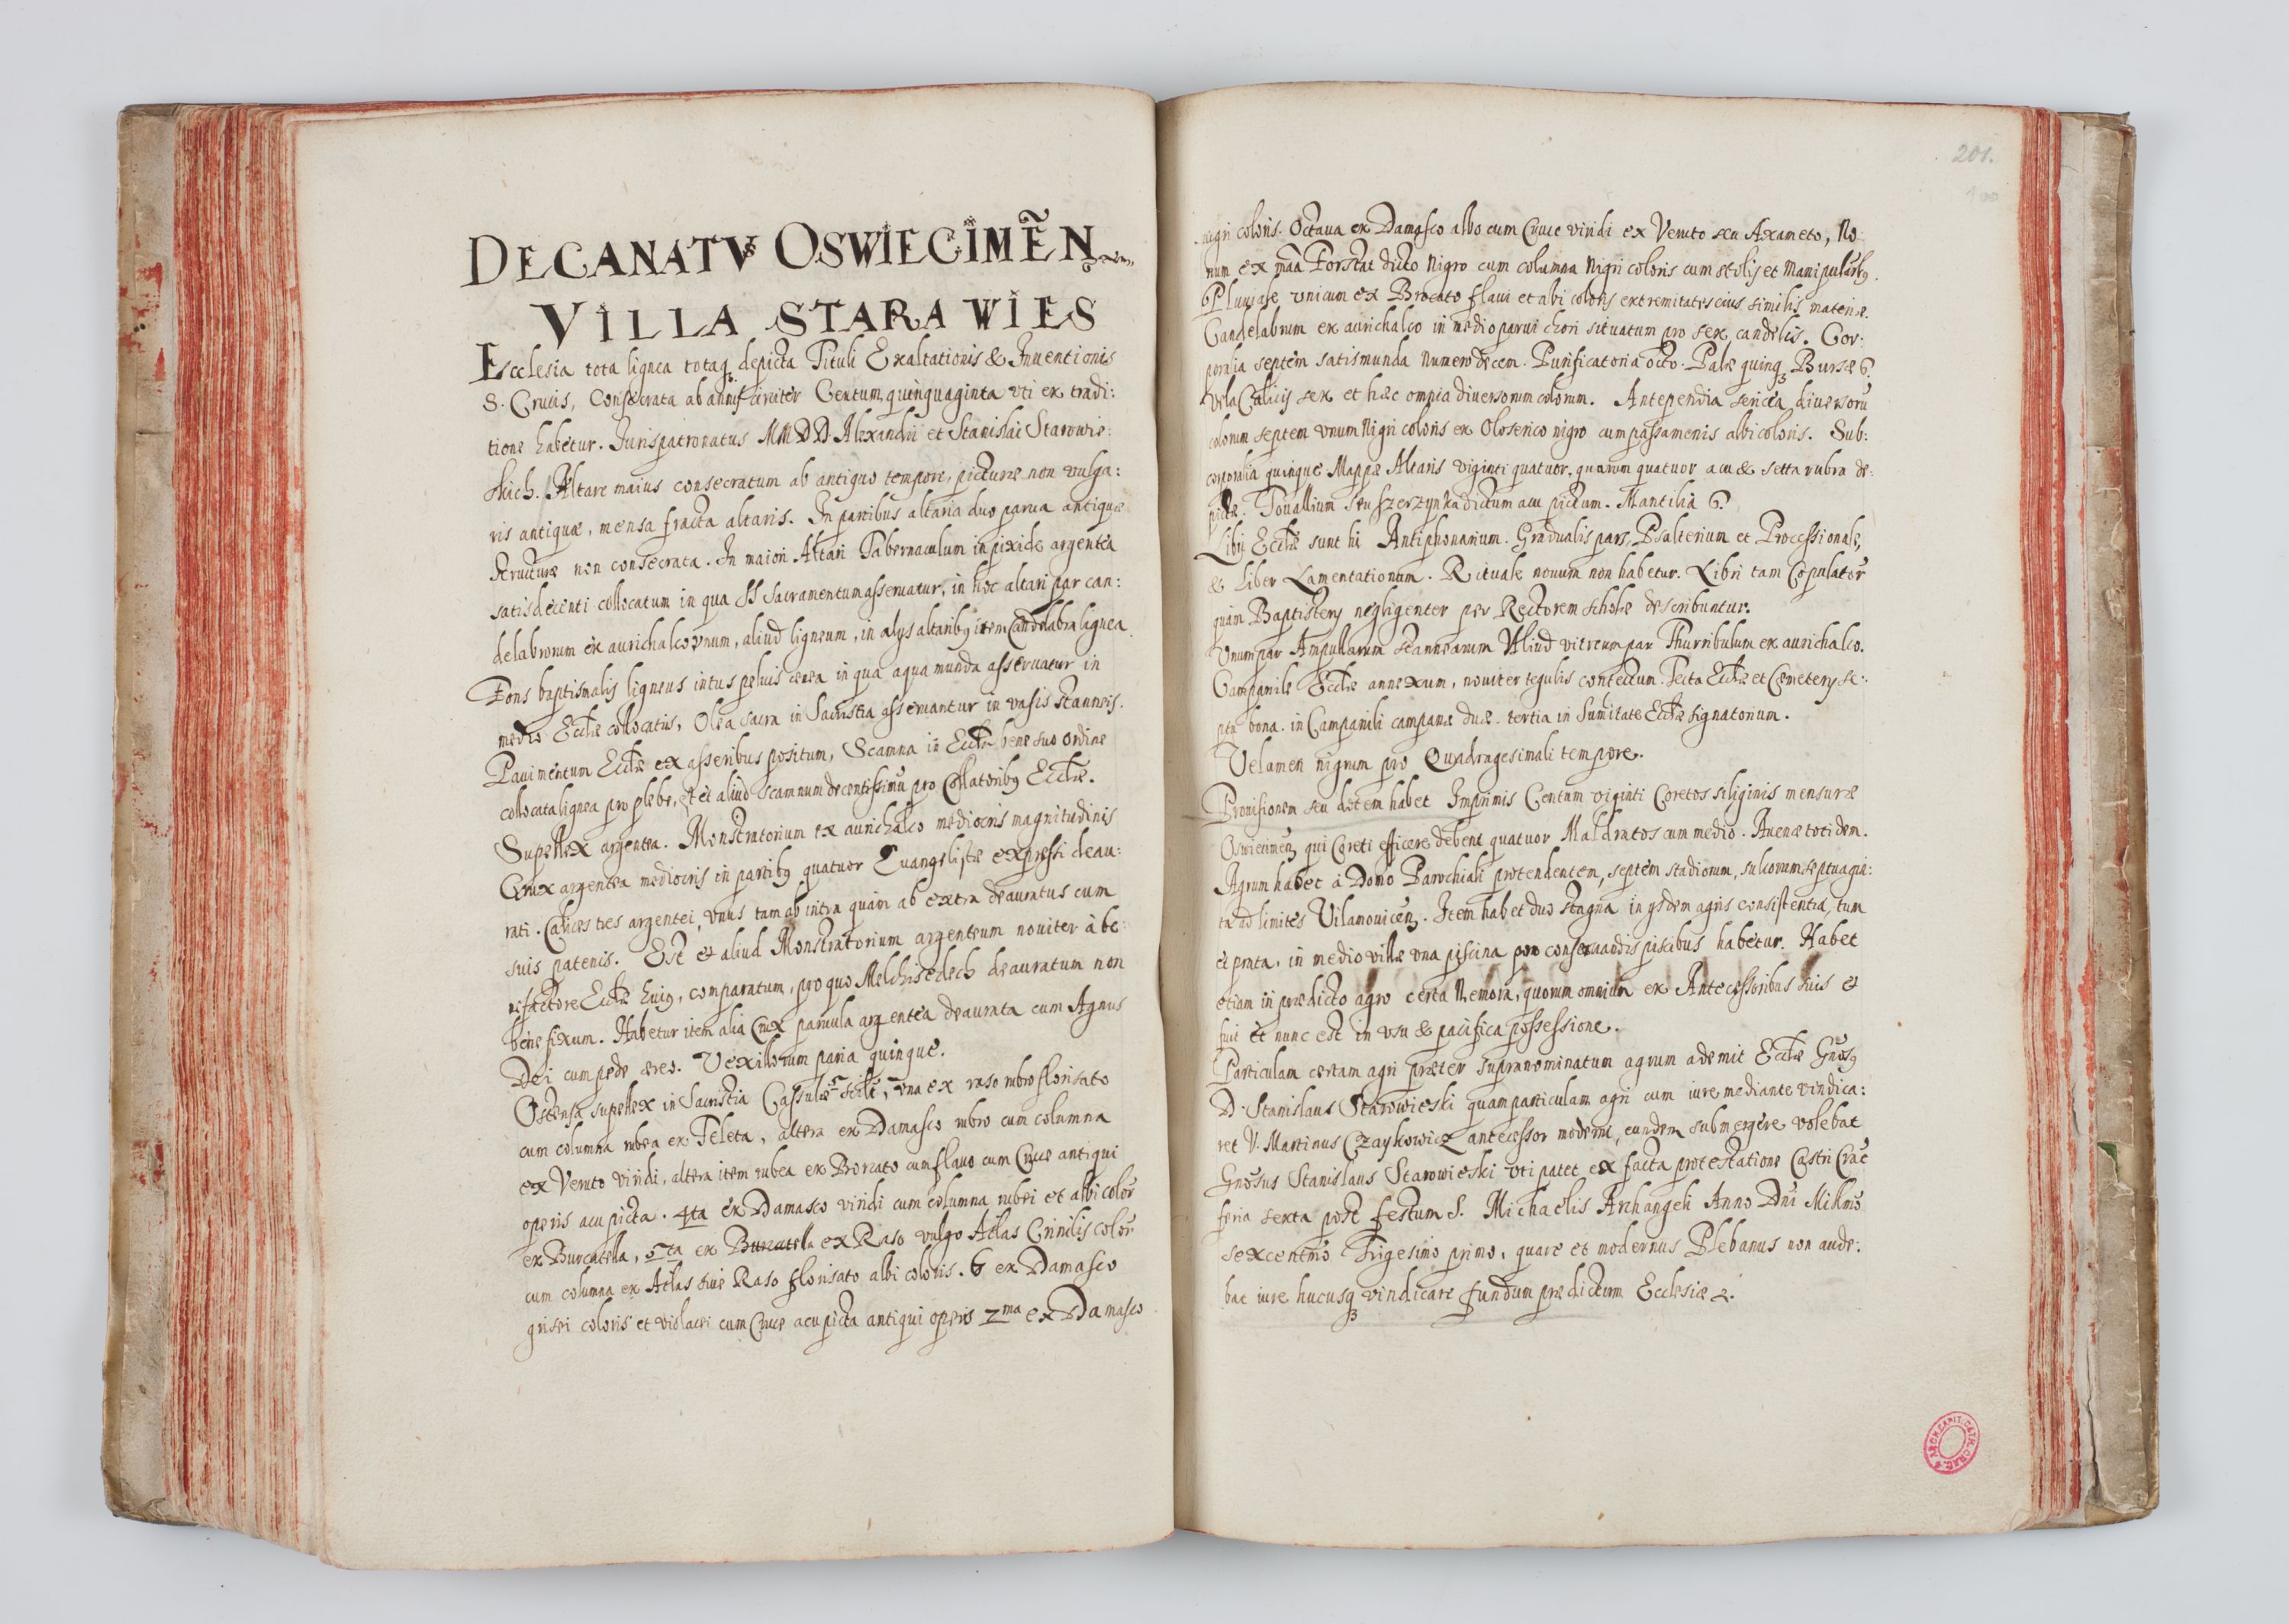 DECANATVs OSWIECIMEÑ
VILLA STARA WIES
Ecclesia tota lignea totaq depicta Tituli Exaltationis & Inuentionis
S. Crucis, Consecrata ab annis circiter Centum quinquaginta vti ex tradi:
tione habetur. Jurispatronatus MM DD Alexandri et Stanislai Starowie:
skich. Altare maius consecratum ab antiquo tempore, picturæ non vulga:
ris antiquæ, mensa fracta altaris. In partibus altaria duo parua antiquæ
structuræ non consecrata. In maiori Altari Tabernaculum in pixide argentea
satis decenti collocatum in qua SS Sacramentum asseruatur, in hoc altari par can:
delabrorum ex aurichalco vnum, aliud ligneum, in alys altaribq item Candelabra lignea.
Fons baptismalis ligneus intus peluis ærea in qua aqua munda asseruatur in
medio Eccłæ collocatus, Olea sacra in Sacristia asseruantur in vasis stanneis.
Pauimentum Eccłæ ex asseribus positum, Scamna in Eccła bene suo ordine
collocata lignea pro plebe, est et aliud scamnum decentissimũ pro Collatoribq Eccłæ.
Supellex argentea. Monstratorium ex aurichalco mediocris magnitudinis
Crux argentea mediocris in partibq quatuor Euangelistæ expressi deau:
rati. Calices tres argentei, vnus tam ab intra quàm ab extra deauratus cum
suis patenis. Est et aliud Monstratorium argenteum nouiter à be:
nefactore Eccłæ huiq, comparatum, pro quo Melchisedech deauratum non
bene fixum. Habetur item alia Crux paruula argentea deaurata cum Agnus
Dei cum pede æreo. Vexillorum paria quinque.
Ostensa supellex in Sacristia Casulæ vna ex raso rubro florisato
cum columna rubea ex Teleta, altera ex Damasco rubro cum columna
ex Veruto viridi, altera item rubea ex Brocato cum flauo cum Cruce antiqui
operis acu picta. 4ta ex Damasco viridi cum columna rubei et albi color
ex Burcatella, 5ta ex Burcatella ex Raso vulgo Atlas Crinilis color
cum columna ex Atlas siue Raso florisato albi coloris. 6 ex Damasco
grisei coloris et violacei cum Cruce acu picta antiqui operis 7ma ex Damasco
201.
100
nigri coloris. Octaua ex Damasco albo cum Cruce viridi ex Veruto seu Axameto, No
num ex mãa Forsztat dicto nigro cum columna Nigri coloris cum stolis et Manipularibq.
Pluuiale vnicum ex Brocato flaui et albi coloris extremitates eius similis materiæ.
Candelabrum ex aurichalco in medio parui chori situatum pro sex candelis. Cor:
poralia septem satis munda numero decem. Purificatoria octo. Palæ quinq Bursæ 6.
Vela Calicis sex et hæc omnia diuersorum colorum. Antependia sericea diuersorũ
colorum septem vnum Nigri coloris ex Oloserico nigro cum passamenis albi coloris. Sub:
corporalia quinque Mappæ Altaris viginti quatuor, quarum quatuor acu & setta rubra de:
pictæ. Touallium seu szerzynka dictum acu pictum. Mantilia 6.
Libri Eccłæ sunt hi Antiphonarium. Gradualis pars, Psalterium et Processionale,
& Liber Lamentationum. Rituale nouum non habetur. Libri tam Copulatorũ
quàm Baptistery negligenter per Rectorem scholæ describuntur.
Vnum par Ampullarum stannearum Aliud vitreum par Thurribulum ex aurichalco.
Campanile Eccłæ annexum, nouiter tegulis contectum. Tecta Eccłæ et Cæmetery se:
pta bona. in Campanili campanæ duæ. tertia in Sumitate Eccłæ signatorium.
Velamen nigrum pro Quadragesimali tempore.
Prouisionem seu dotem habet Imprimis Centum viginti Coretos siliginis mensuræ
Oswiecimen qui Coreti efficere debent quatuor Maldratos cum medio. Auenæ totidem.
Agrum habet à Domo Parochiali protendentem, septem stadiorum, sulcorum septuagin:
ta ad limites Vilamouicen. Item habet duo stagna in ijsdem agris consistentia, tum
et prata, in medio villæ vna piscina pro conseruandis piscibus habetur. Habet
etiam in prædicto agro certa Nemora, quorum omnium ex Antecessoribus suis et
fuit et nunc est in vsu & pacifica possessione.
Particulam certam agri præter supranominatum agrum ademit Eccłæ Gnosq
D. Stanislaus Starowieski quam particulam agri cum iure mediante vindica:
ret V. Martinus Czaykowicz antecessor moderni, eundem submergere volebat
Gnosus Stanislaus Starowieski vti patet ex facta protestatione Castri Crac
feria sexta post festum S. Michaelis Archangeli Anno Dni Millmo
sexcentmo Trigesimo primo, quare et modernus Plebanus non aude:
bat iure hucusq vindicare fundum prædictum Ecclesiæ.
ARCH. CAPIT. CATH. CRAC.